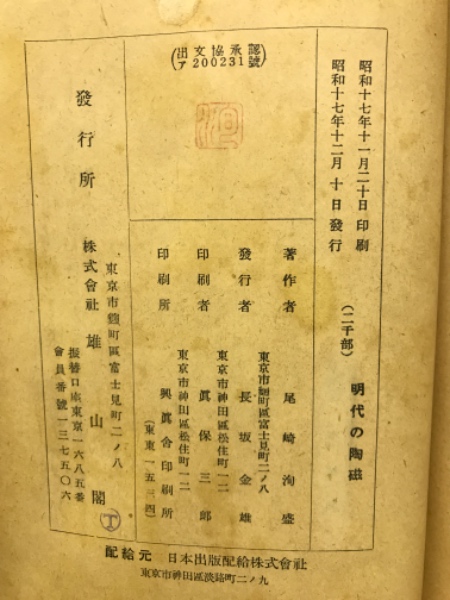 昭和十七年十一月二十日印刷
昭和十七年十二月 十 日發行
(二千部)
明代の陶磁
出文協承認
ア200231號
著作者 尾崎洵盛
東京市麴町區富士見町二ノ八
發行者 長坂金雄
東京市神田區松住町一二
印刷者 眞保三郎
東京市神田區松住町一二
印刷所 興眞舍印刷所
(東東一五三四)
發行所
東京市麴町區富士見町二ノ八
株式會社 雄山閣
振替口座東京一六八五番
會員番號一三七五〇六
配給元 日本出版配給株式會社
東京市神田區淡路町二ノ九